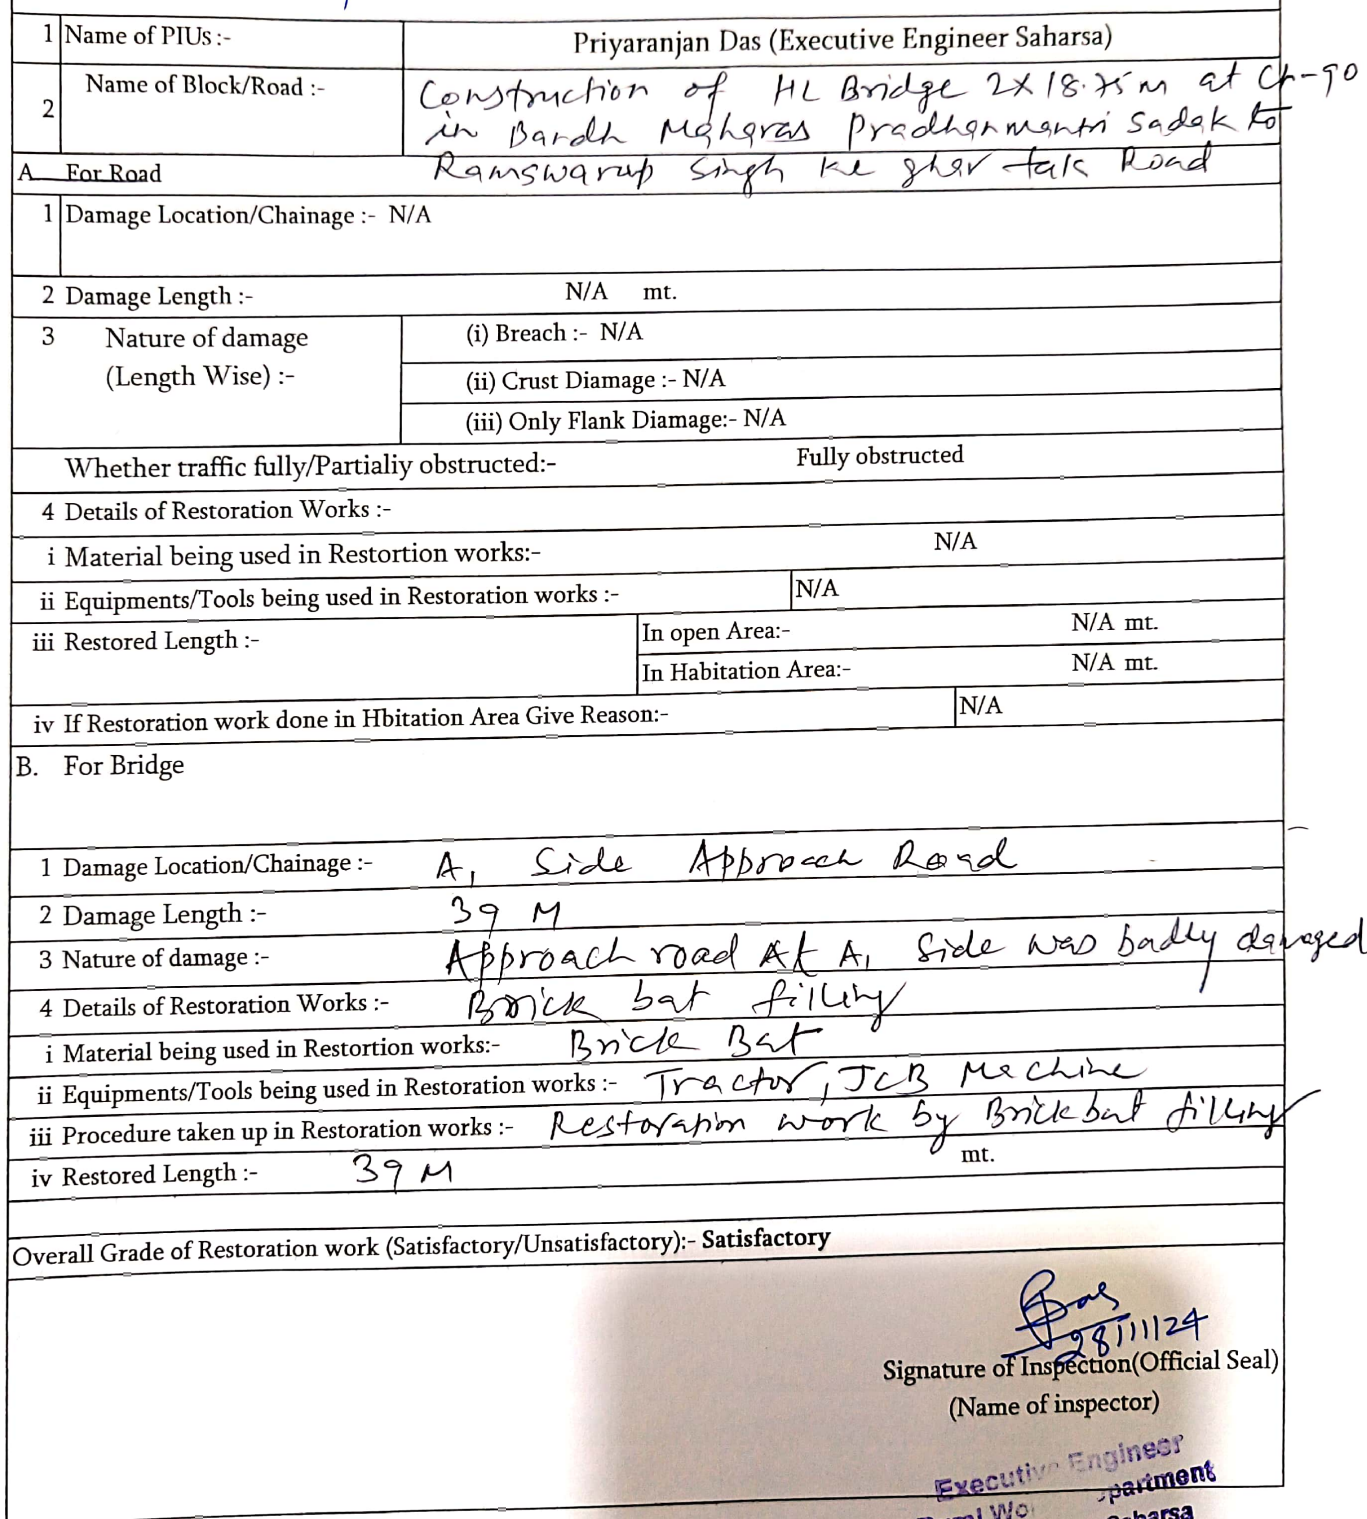 1 Name of PIUs :- Priyaranjan Das (Executive Engineer Saharsa)
2 Name of Block/Road :- Construction of HL Bridge 2X18.75m at Ch-90
in Bardh Maharas Pradhanmantri Sadak to
Ramswarup Singh ke ghar tak Road
A For Road
1 Damage Location/Chainage :- N/A
2 Damage Length :- N/A mt.
3 Nature of damage (i) Breach :- N/A
(Length Wise) :- (ii) Crust Diamage :- N/A
(iii) Only Flank Diamage:- N/A
Whether traffic fully/Partialiy obstructed:- Fully obstructed
4 Details of Restoration Works :-
i Material being used in Restortion works:- N/A
ii Equipments/Tools being used in Restoration works :- N/A
iii Restored Length :- In open Area:- N/A mt.
In Habitation Area:- N/A mt.
iv If Restoration work done in Hbitation Area Give Reason:- N/A
B. For Bridge
1 Damage Location/Chainage :- A1 Side Approach Road
2 Damage Length :- 39 M
3 Nature of damage :- Approach road At A1 Side was badly damaged
4 Details of Restoration Works :- Brick bat filling
i Material being used in Restortion works:- Brick Bat
ii Equipments/Tools being used in Restoration works :- Tractor, JCB Machine
iii Procedure taken up in Restoration works :- Restoration work by Brick bat filling
iv Restored Length :- 39 M mt.
Overall Grade of Restoration work (Satisfactory/Unsatisfactory):- Satisfactory
28/11/24
Signature of Inspection(Official Seal)
(Name of inspector)
Executive Engineer